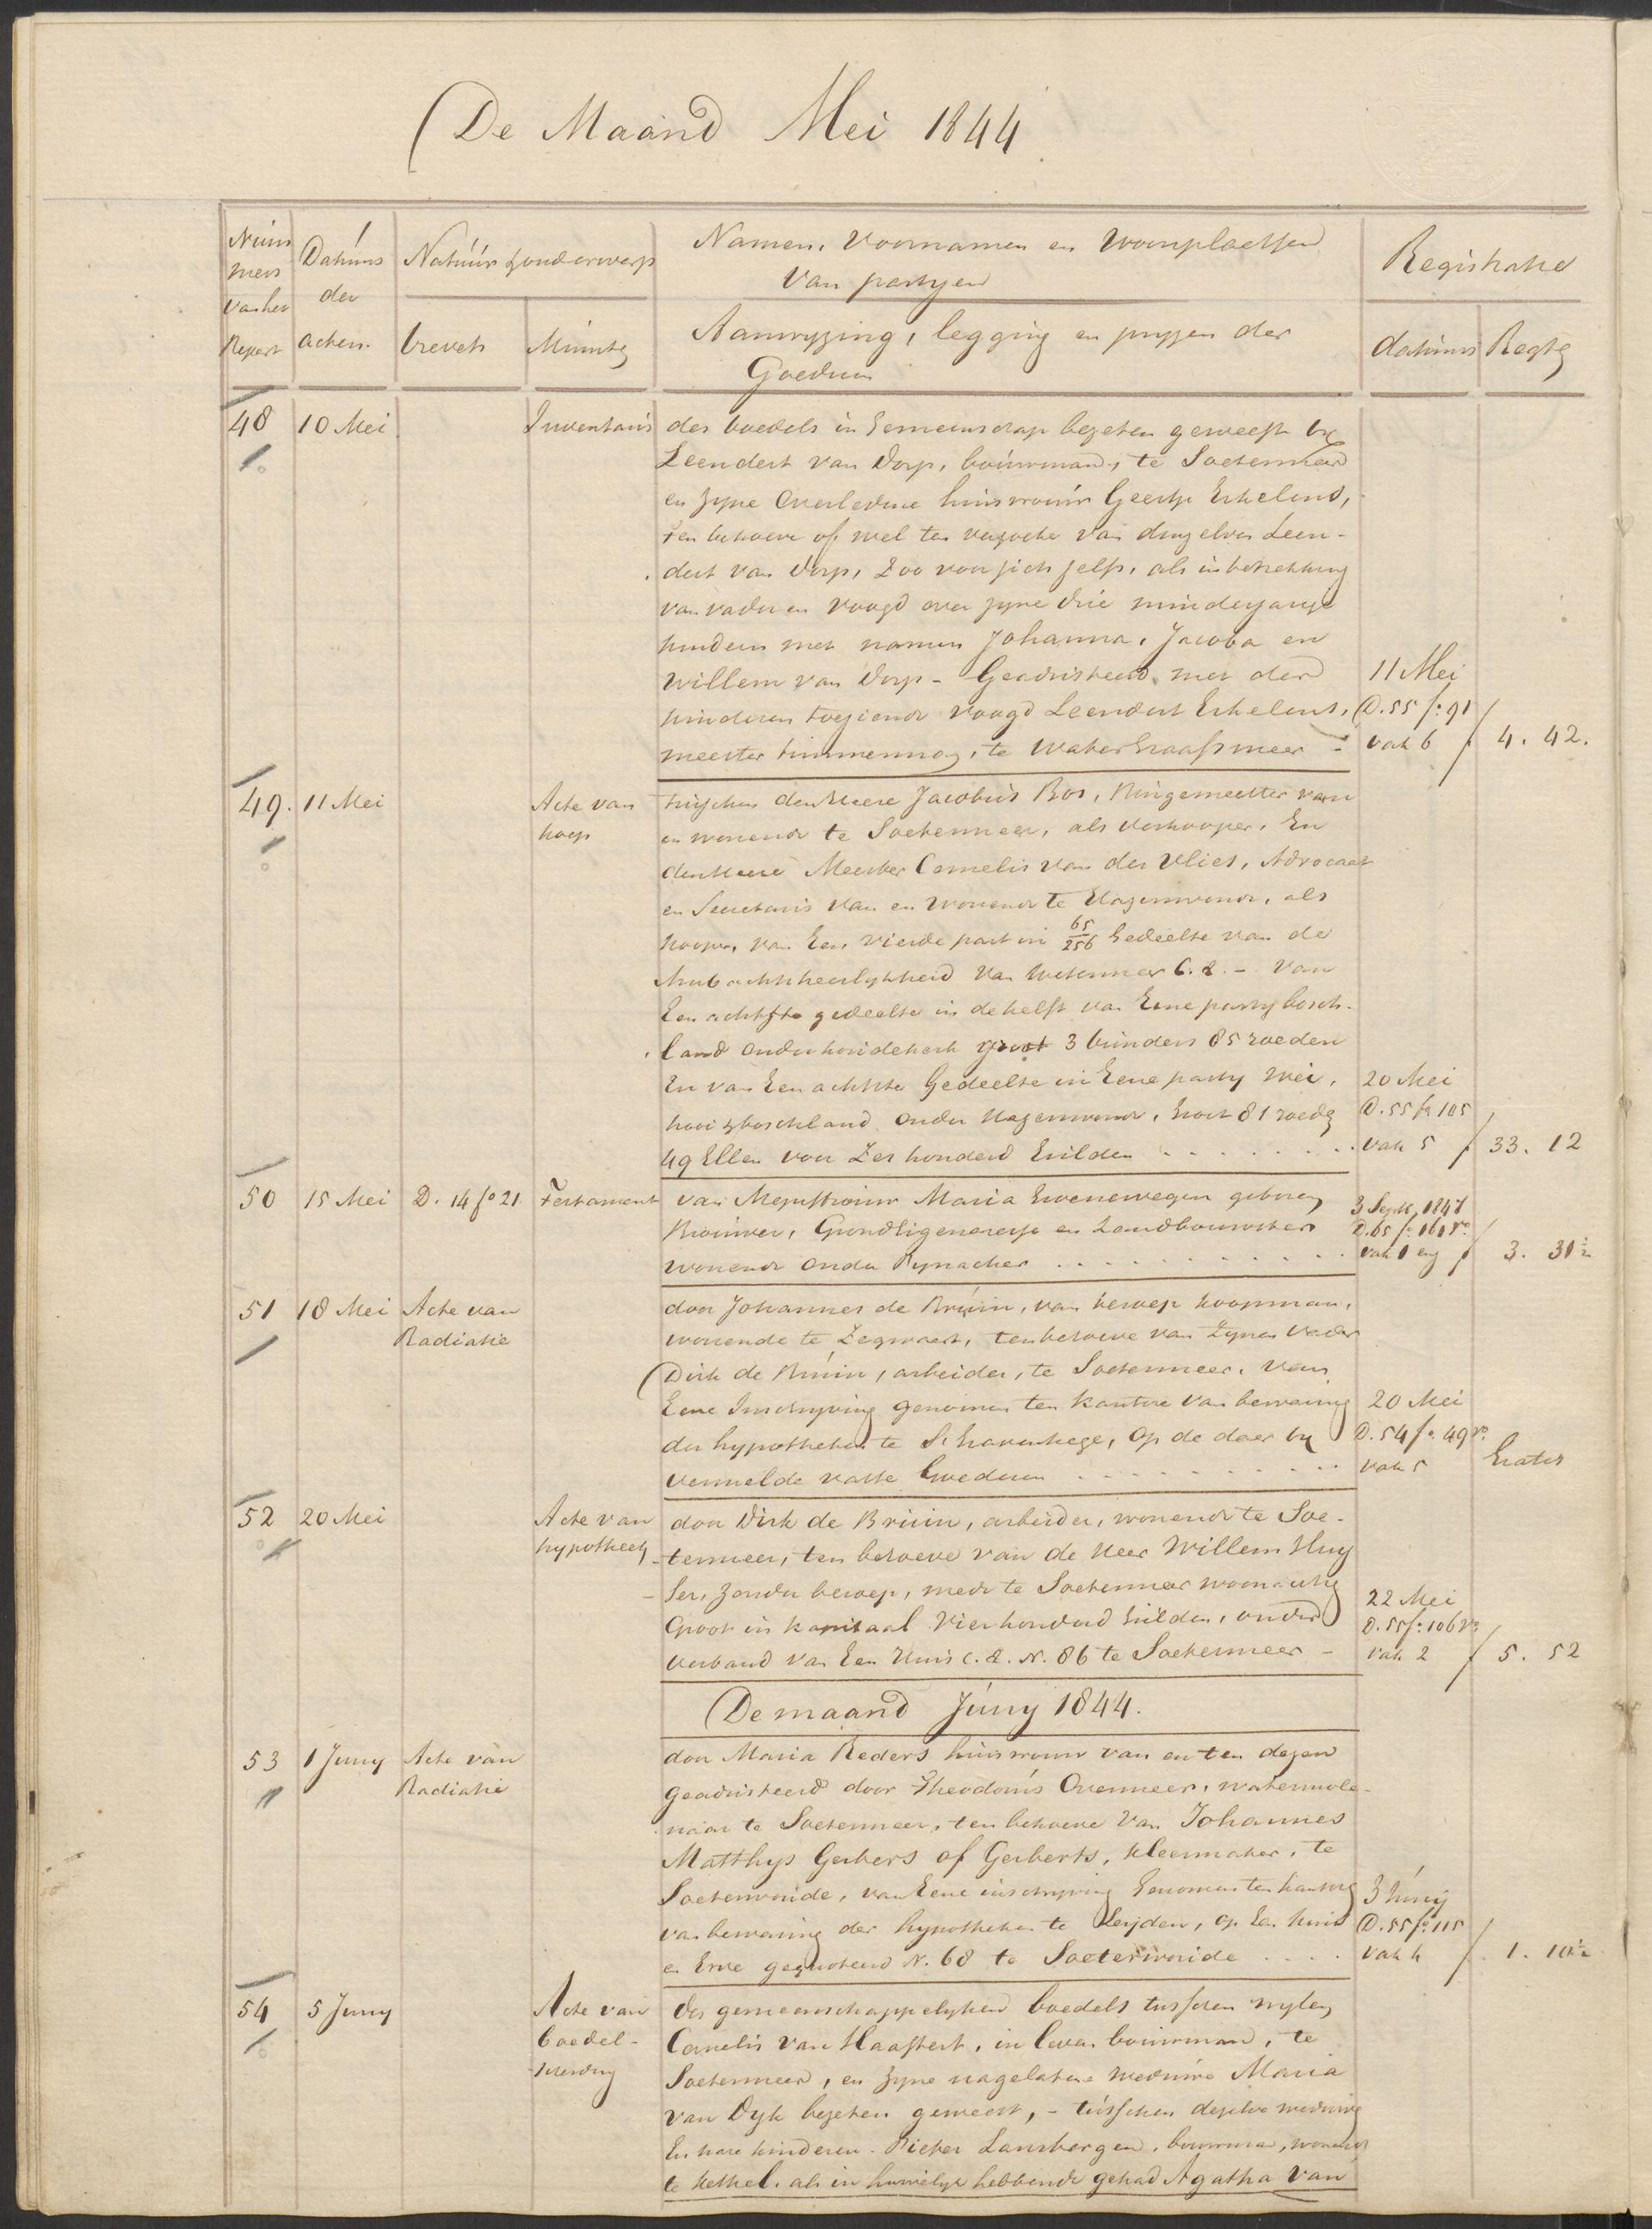 De Maand Mei 1844
Num
mers
van het
Repert
Datums
der
acten.
Natuur & onderwerp
brevets
Minuten
Namen, Voornamen en Woonplaatsen
Van partijen
Aanwijzing, legging en prijzen der
Goederen
Registratie
datums
Regten
48
10 Mei
Inventaris
des boedels in Gemeenschap bezeten geweest bij
Leendert van Dorp, bouwman, te Soetermeer
en zijne Overledene huisvrouw Geertje Erkelens,
ten behoeve of wel ten verzoeke van denzelven Leen-
dert van Dorp, Zoo voor zich zelf, als in betrekking
van vader en voogd over zijne drie minderjarige
kinderen met namen Johanna, Jacoba en
Willem van Dorp - Geadsisteerd met der
kinderen toeziende voogd Leendert Erkelens,
meester timmerman, te Watergraafsmeer -
11 Mei
D. 55 fo 91
vak 6
f 4. 42.
49.
11 Mei
Acte van
koop
tusschen den Heere Jacobus Bos, Burgemeester van
en wonende te Soetermeer, als Verkooper, En
den Heere Meester Cornelis van der Vlies, Advocaat
en Secretaris van en Wonende te Hazerswoude, als
kooper, van Een vierde part in 65/256 Gedeelte van de
Ambachtsheerlykheid van Soetermeer C.a. - van
Een achtste gedeelte in de helft van Eene partij bosch-
land onder groot 3 bunders 85 roeden
En van Een achtste Gedeelte in Eene partij wei,
hooi & boschland onder Hazerswoude, Groot 81 roeden
49 Ellen voor Zes honderd Gulden
20 Mei
D. 55 fo 105
vak 5
f 33. 12
50
15 Mei
D. 14 fo 21
Testament
van Mejuffrouw Maria Groenewegen geboren
Brouwer, Grondeigenaresse en Landbouwster
wonende onder Pynacker
3 Sept. 1847
D. 65 fo 161 vo
vak 1 en
f 3. 31½
51
18 Mei
Acte van
Radiatie
door Johannes de Bruin, van beroep koopman,
wonende te Zegwaert, ten behoeve van Zynen Vader
Dirk de Bruin, arbeider, te Soetermeer, van
Eene Inschrijving genomen ten kantore van bewaring
der hypotheken te 's Gravenhage, Op de daar bij
vermelde vaste Goederen
20 Mei
D. 54 fo 49 vo
vak 5
Gratis
52
20 Mei
Acte van
hypotheek
door Dirk de Bruin, arbeider, wonende te Soe-
termeer, ten behoeve van de Heer Willem Huy
ser, zonder beroep, mede te Soetermeer woonachtig
Groot in kapitaal Vierhonderd Gulden, onder
verband van Een Huis C.a. N. 86 te Soetermeer -
22 Mei
D. 55 fo 106 vo
vak 2
f 5. 52
De maand Juny 1844.
53
1 Juny
Acte van
Radiatie
door Maria Reders huisvrouw van en ten dezen
geadsisteerd door Theodorus Overmeer, watermole-
naar te Soetermeer, ten behoeve van Johannes
Matthys Gerbers of Gerberts, kleermaker, te
Soeterwoude, van Eene inschrijving Genomen ten kantore
van bewaring der hypotheken te Leijden, op Een huis
en Erve gequoteerd N. 68 te Soeterwoude
3 Juny
D. 55 fo 115
vak 4
f 1. 10½
54
5 Juny
Acte van
boedel-
scheiding
des gemeenschappelyken boedels tusschen wylen
Cornelis van Haastert, in leven bouwman, te
Soetermeer, en zyne nagelatene weduwe Maria
van Dyk bezeten geweest, - tusschen dezelve weduwe
En hare kinderen. Pieter Lansbergen, bouwman, wonende
te Kethel, als in huwelijk hebbende gehad Agatha van